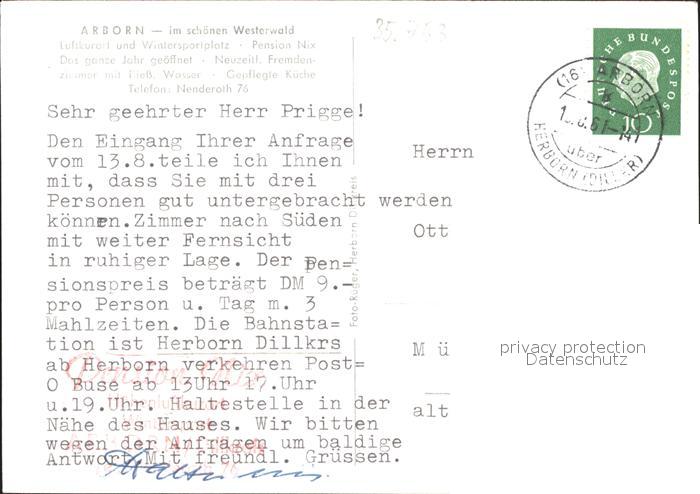 35.763
ARBORN — im schönen Westerwald
Luftkurort und Wintersportplatz · Pension Nix
Das ganze Jahr geöffnet · Neuzeitl. Fremden-
zimmer mit fließ. Wasser · Gepflegte Küche
Telefon: Nenderoth 76
DEUTSCHE BUNDESPOST
10
(16) ARBORN
über
HERBORN (DILLKR)
Sehr geehrter Herr Prigge!
Den Eingang Ihrer Anfrage
vom 13.8.teile ich Ihnen
mit, dass Sie mit drei
Personen gut untergebracht werden
können.Zimmer nach Süden
mit weiter Fernsicht
in ruhiger Lage. Der Pen=
sionspreis beträgt DM 9.-
pro Person u. Tag m. 3
Mahlzeiten. Die Bahnsta=
tion ist Herborn Dillkrs
ab Herborn verkehren Post=
O Buse ab 13Uhr 17.Uhr
u.19.Uhr. Haltestelle in der
Nähe des Hauses. Wir bitten
wegen der Anfragen um baldige
Antwort.Mit freundl. Grüssen.
Pension Nix
Foto-Rüger, Herborn Dillkreis
Herrn
Ott
M ü
alt
privacy protection
Datenschutz